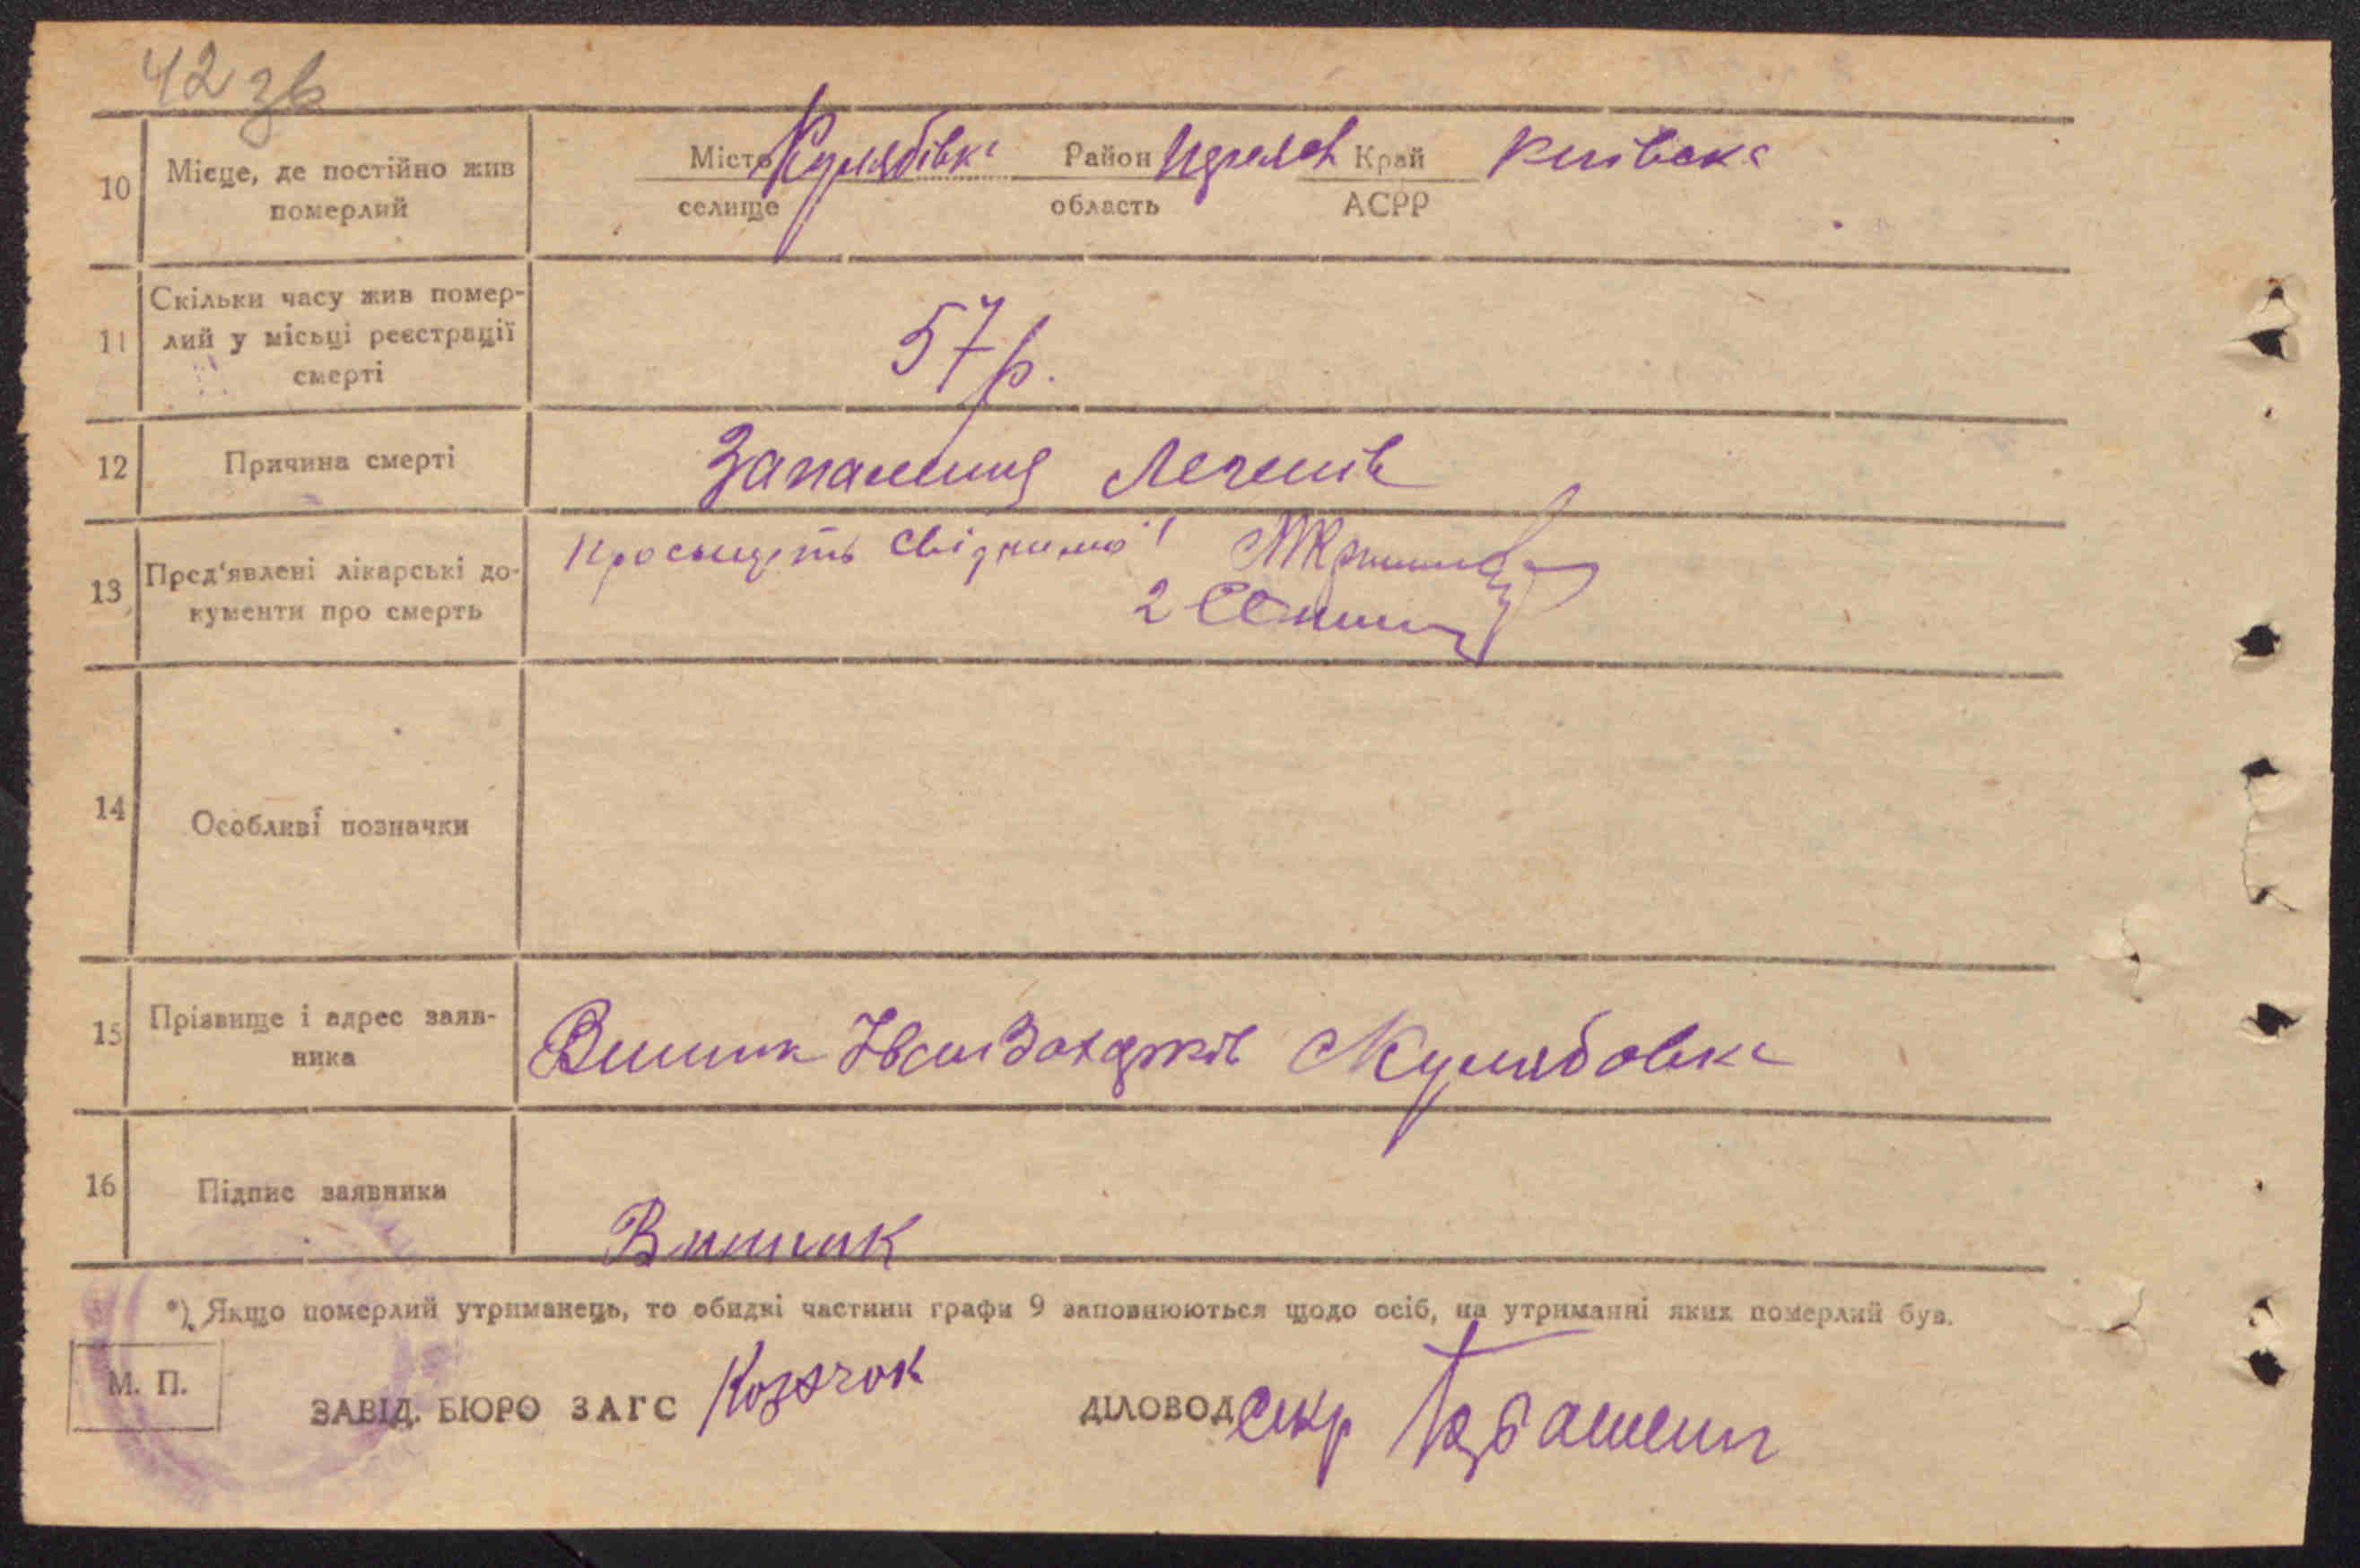 42 зв
10 Місце, де постійно жив померлий
Місто Кулябівка Район Край Київска
селище область АСРР
11 Скільки часу жив помер-
лий у місьці реєстрації
смерті
57 р.
12 Причина смерті Запалення Легенів
13 Пред'явлені лікарські до-
кументи про смерть
2
14 Особливі позначки
15 Прізвище і адрес заяв-
ника
Винник Іван Кулябовка
16 Підпис заявника
Винник
*) Якщо померлий утриманець, то обидві частини графи 9 заповнюються щодо осіб, на утриманні яких померлий був.
М. П.
ЗАВІД. БЮРО ЗАГС Козачок ДІЛОВОД Секр